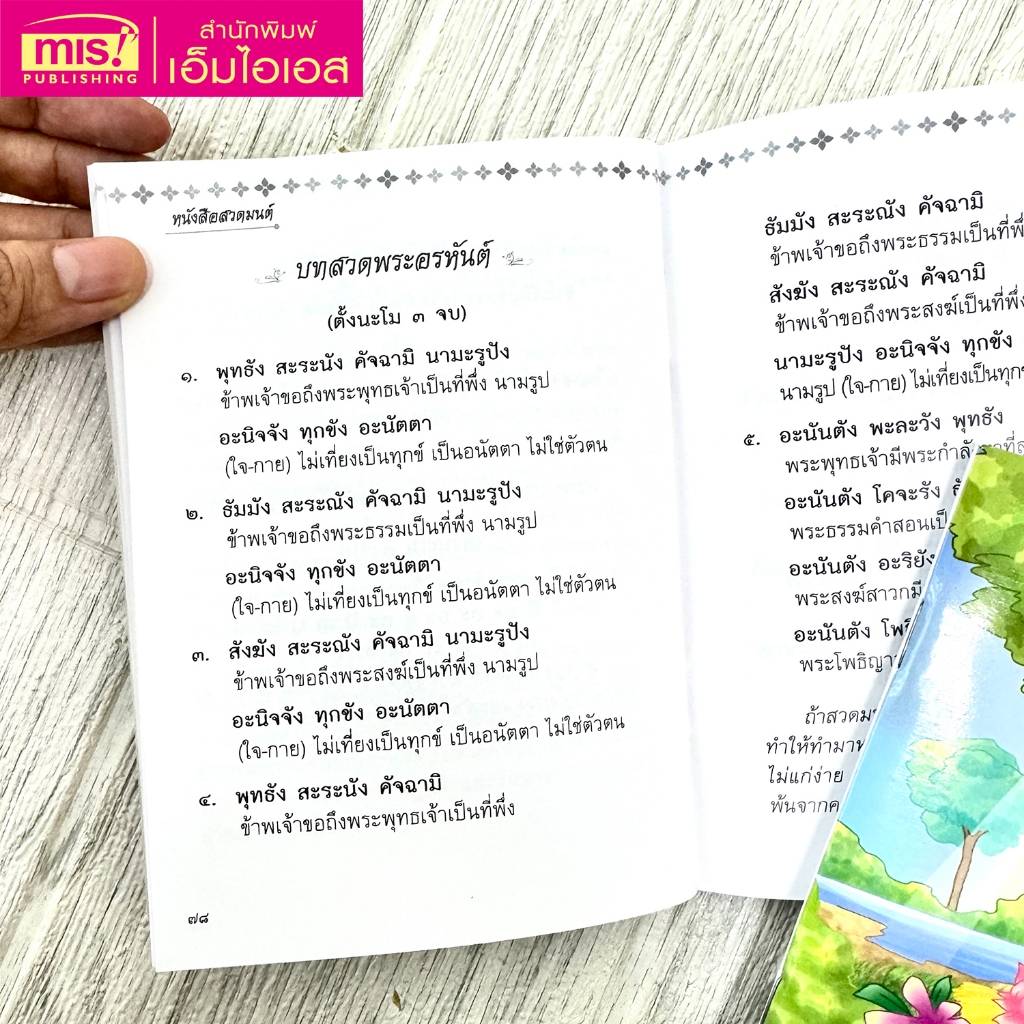 mis!
PUBLISHING
สำนักพิมพ์
เอ็มไอเอส
หนังสือสวดมนต์
บทสวดพระอรหันต์
(ตั้งนะโม ๓ จบ)
๑. พุทธัง สะระนัง คัจฉามิ นามะรูปัง
ข้าพเจ้าขอถึงพระพุทธเจ้าเป็นที่พึ่ง นามรูป
อะนิจจัง ทุกขัง อะนัตตา
(ใจ-กาย) ไม่เที่ยงเป็นทุกข์ เป็นอนัตตา ไม่ใช่ตัวตน
๒. ธัมมัง สะระณัง คัจฉามิ นามะรูปัง
ข้าพเจ้าขอถึงพระธรรมเป็นที่พึ่ง นามรูป
อะนิจจัง ทุกขัง อะนัตตา
(ใจ-กาย) ไม่เที่ยงเป็นทุกข์ เป็นอนัตตา ไม่ใช่ตัวตน
๓. สังฆัง สะระณัง คัจฉามิ นามะรูปัง
ข้าพเจ้าขอถึงพระสงฆ์เป็นที่พึ่ง นามรูป
อะนิจจัง ทุกขัง อะนัตตา
(ใจ-กาย) ไม่เที่ยงเป็นทุกข์ เป็นอนัตตา ไม่ใช่ตัวตน
๔. พุทธัง สะระนัง คัจฉามิ
ข้าพเจ้าขอถึงพระพุทธเจ้าเป็นที่พึ่ง
๗๘
ธัมมัง สะระณัง คัจฉามิ
ข้าพเจ้าขอถึงพระธรรมเป็นที่พึ่
สังฆัง สะระณัง คัจฉามิ
ข้าพเจ้าขอถึงพระสงฆ์เป็นที่พึ่ง
นามะรูปัง อะนิจจัง ทุกขัง
นามรูป (ใจ-กาย) ไม่เที่ยงเป็นทุก
๕. อะนันตัง พะละวัง พุทธัง
พระพุทธเจ้ามีพระกำลั
อะนันตัง โคจะรัง
พระธรรมคำสอนเป็
อะนันตัง อะริยัง
พระสงฆ์สาวกมี
อะนันตัง
พระโพธิญา
ถ้าสวดม
ทำให้ทำมาห
ไม่แก่ง่าย
พ้นจากค